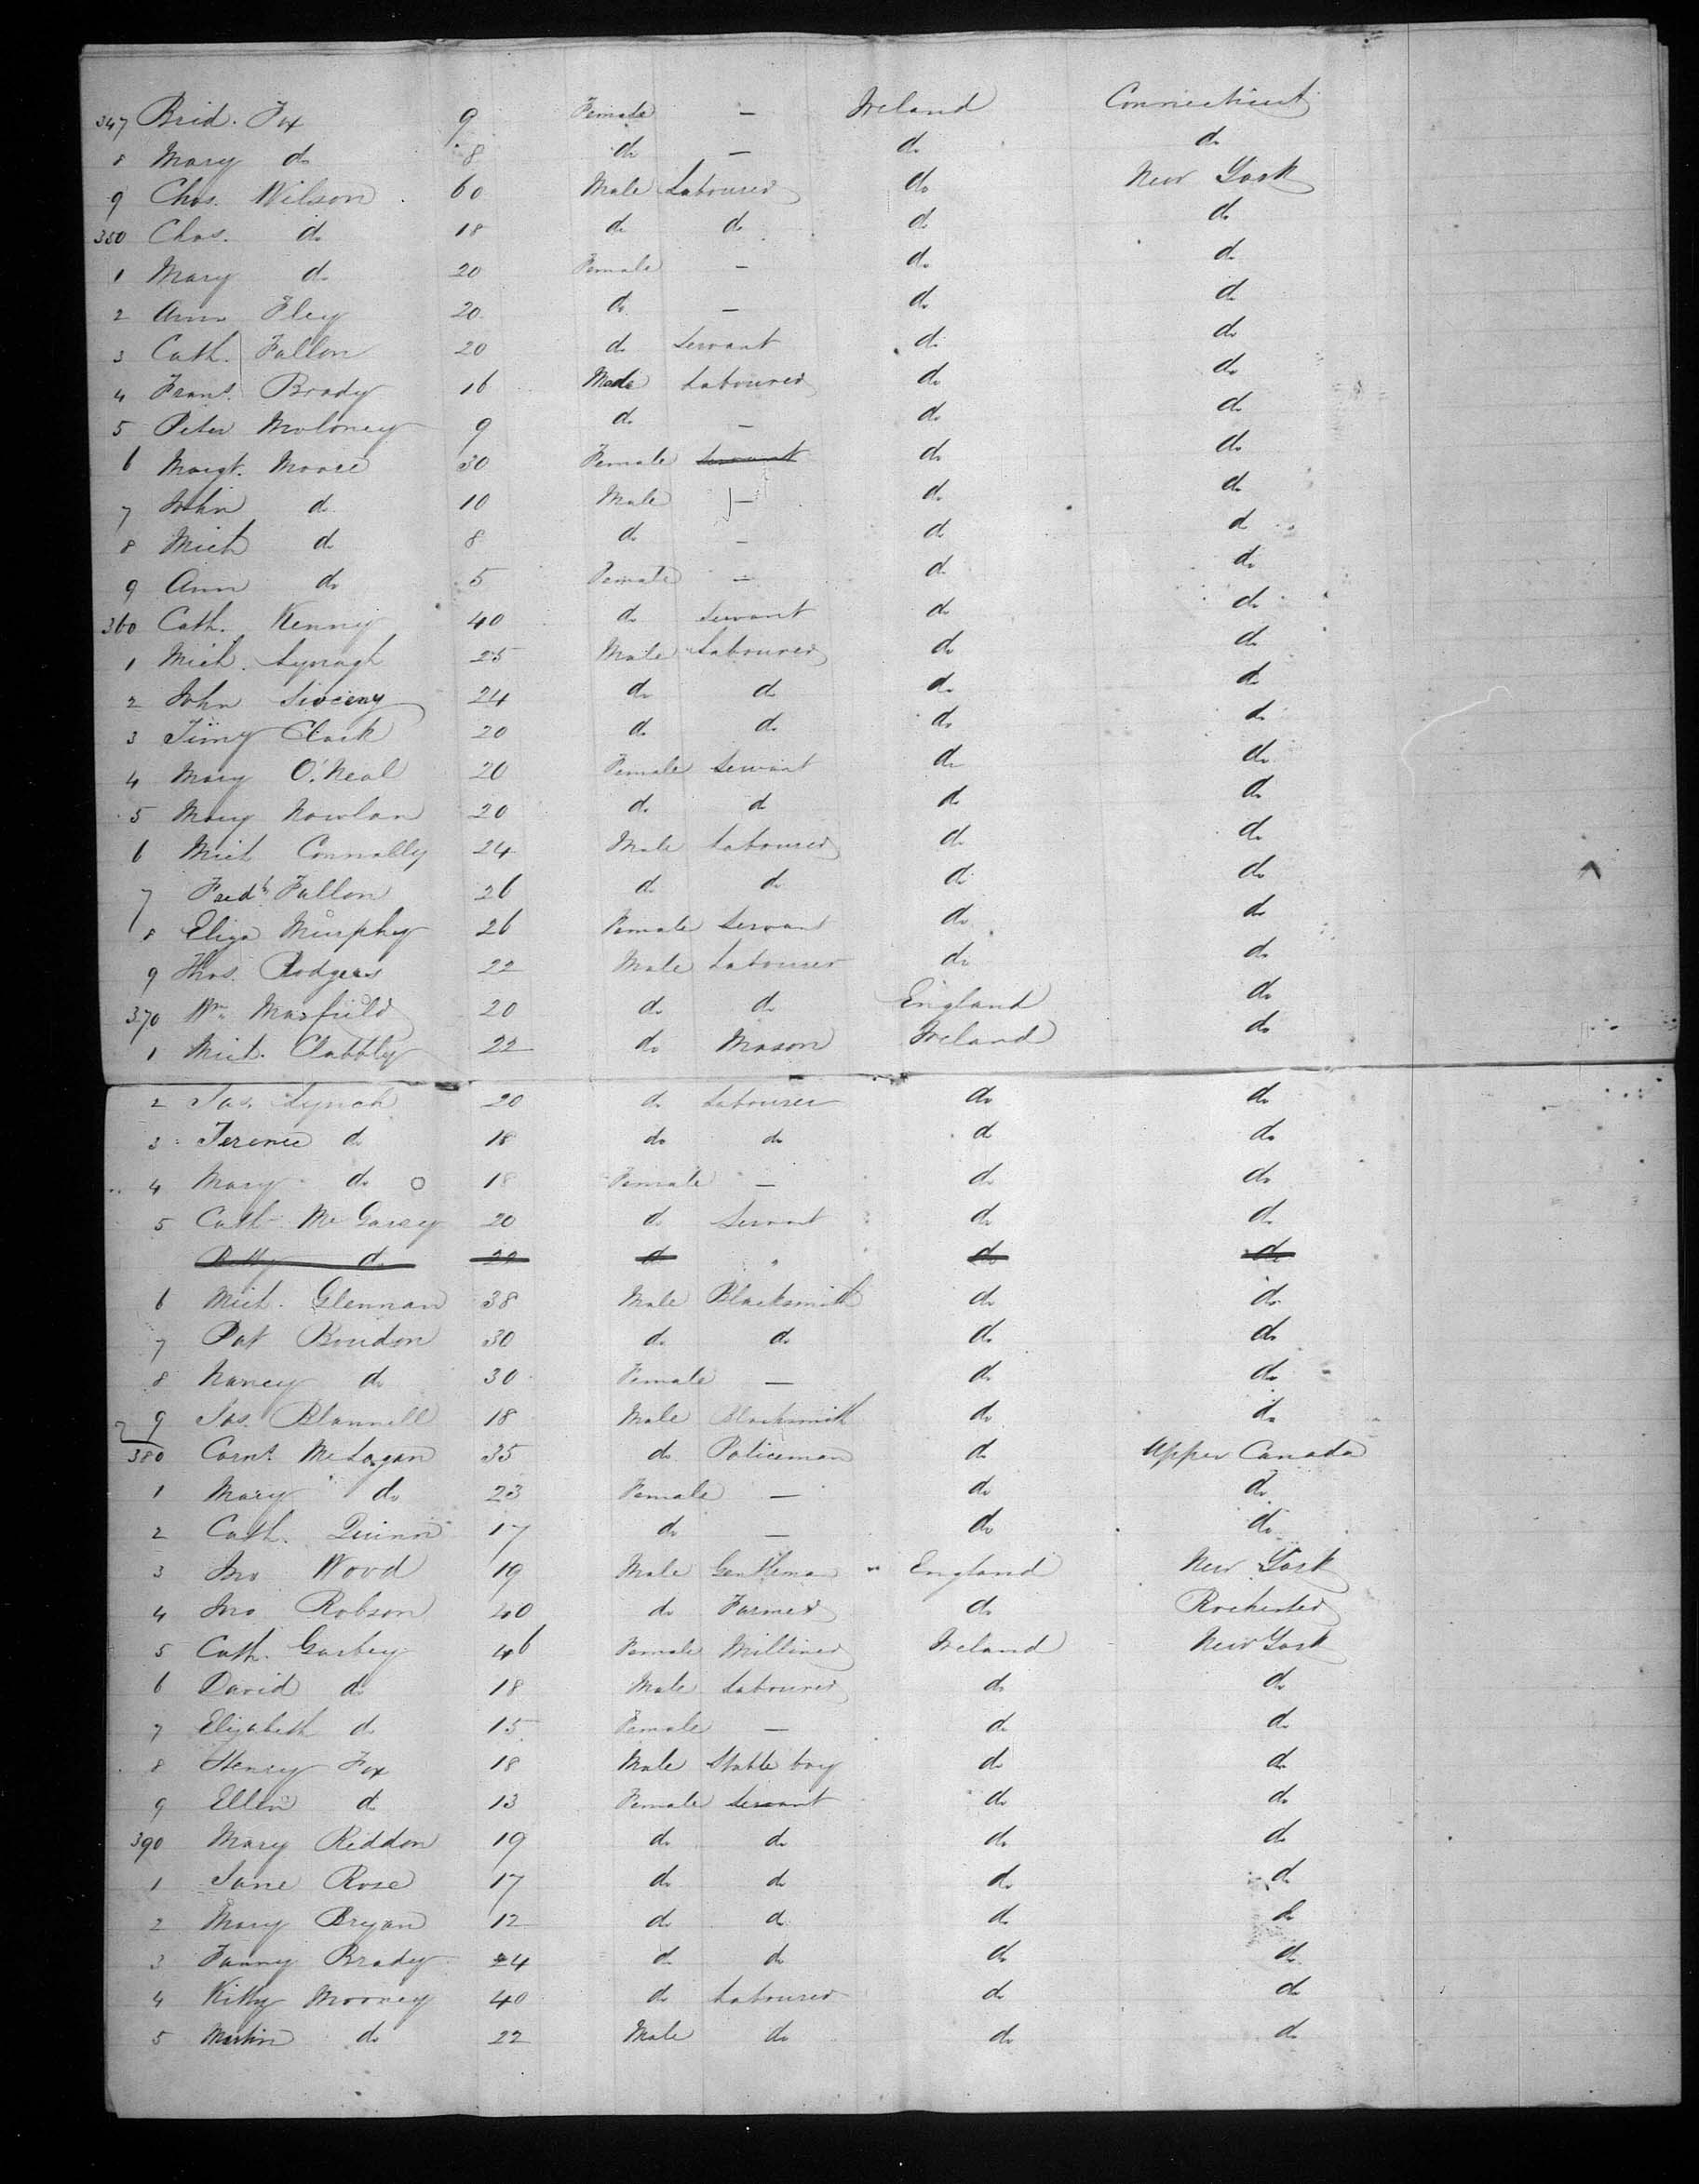 347 Brid. Fox 9 Female — Ireland Connecticut
8 Mary do 8 do — do do
9 Chas. Wilson 60 Male Labourer do New York
350 Chas. do 18 do do do do
1 Mary do 20 Female — do do
2 Ann Fley 20 do — do do
3 Cath. Fallon 20 do Servant do do
4 Frans. Brady 16 Male Labourer do do
5 Peter Moloney 9 do — do do
6 Margt. Moore 30 Female Servant do do
7 John do 10 Male — do do
8 Mich do 8 do — do do
9 Ann do 5 Female — do do
360 Cath. Kenny 40 do Servant do do
1 Mich. Lynagh 25 Male Labourer do do
2 John 24 do do do do
3 Timy Clark 20 do do do do
4 Mary O'Neal 20 Female Servant do do
5 Mary Nowlan 20 do do do do
6 Mich Connolly 24 Male Labourer do do
7 Fredk Fallon 26 do do do do
8 Eliza Murphy 26 Female Servant do do
9 Thos. Rodgers 22 Male Labourer do do
370 Wm Masfield 20 do do England do
1 Mich. Clabbly 22 do Mason Ireland do
2 Jas. Lynch 20 do Labourer do do
3 Terence do 18 do do do do
4 Mary do 18 Female — do do
5 Cath McGarey 20 do Servant do do
do do do do
6 Mich. Glennan 38 Male Blacksmith do do
7 Pat Boudon 30 do do do do
8 Nancy do 30 Female — do do
9 Jas. Blannell 18 Male Blacksmith do do
380 Corns. McLogan 35 do Policeman do Upper Canada
1 Mary do 23 Female — do do
2 Cath. Quinn 17 do — do do
3 Jno Wood 19 Male Gentleman England New York
4 Jno Robson 40 do Farmer do Rochester
5 Cath. Garbey 46 Female Milliner Ireland New York
6 David do 18 Male Labourer do do
7 Elizabeth do 15 Female — do do
8 Henry Fox 18 Male Stable boy do do
9 Ellen do 13 Female Servant do do
390 Mary Reddon 19 do do do do
1 Jane Rose 17 do do do do
2 Mary Bryan 12 do do do do
3 Fanny Brady 24 do do do do
4 Kitty Mooney 40 do Labourer do do
5 Martin do 22 Male do do do